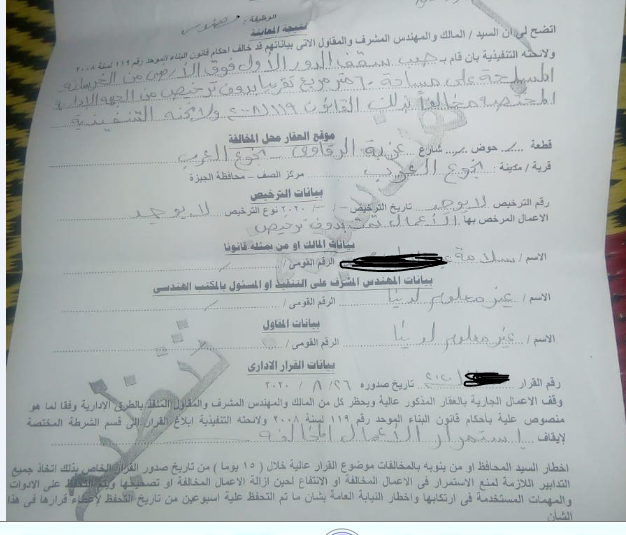 الوظيفة / مهندس
نتيجة المعاينة
اتضح لى ان السيد / المالك والمهندس المشرف والمقاول الاتى بياناتهم قد خالف احكام قانون البناء الموحد رقم ١١٩ لسنة ٢٠٠٨
ولائحته التنفيذية بان قام بـ صب سقف الدور الأول فوق الأرضى من الخرسانه
المسلحة على مساحة ٦٠ متر مربع تقريبا بدون ترخيص من الجهه الادارية
المختصة مخالفا بذلك القانون ١١٩/٢٠٠٨ ولائحته التنفيذية
موقع العقار محل المخالفة
قطعة حوض شارع عزبة الرقاوى - نجوع العرب
قرية / مدينة نجوع العرب مركز الصف - محافظة الجيزة
بيانات الترخيص
رقم الترخيص لا يوجد تاريخ الترخيص - / - / ٢٠٢٠ نوع الترخيص لا يوجد
الاعمال المرخص بها الأعمال تمت بدون ترخيص
بيانات المالك او من يمثله قانونا
الاسم / سلامة الرقم القومى /
بيانات المهندس المشرف على التنفيذ او المسئول بالمكتب الهندسى
الاسم / غير معلوم لدينا الرقم القومى /
بيانات المقاول
الاسم / غير معلوم لدينا الرقم القومى /
بيانات القرار الادارى
رقم القرار تاريخ صدوره ٢٦ / ٨ / ٢٠٢٠
وقف الاعمال الجارية بالعقار المذكور عالية ويحظر كل من المالك والمهندس المشرف والمقاول المنفذ بالطرق الادارية وفقا لما هو
منصوص علية بأحكام قانون البناء الموحد رقم ١١٩ لسنة ٢٠٠٨ ولائحته التنفيذية ابلاغ القرار الى قسم الشرطة المختصة
لايقاف استمرار الأعمال المخالفة
اخطار السيد المحافظ او من ينوبه بالمخالفات موضوع القرار عالية خلال ( ١٥ يوما ) من تاريخ صدور القرار الخاص بذلك اتخاذ جميع
التدابير اللازمة لمنع الاستمرار فى الاعمال المخالفة او الانتفاع لحين ازالة الاعمال المخالفة او تصحيحها ويتم التحفظ على الادوات
والمهمات المستخدمة فى ارتكابها واخطار النيابة العامة بشان ما تم التحفظ علية اسبوعين من تاريخ التحفظ لاعطاء قرارها فى هذا
الشان